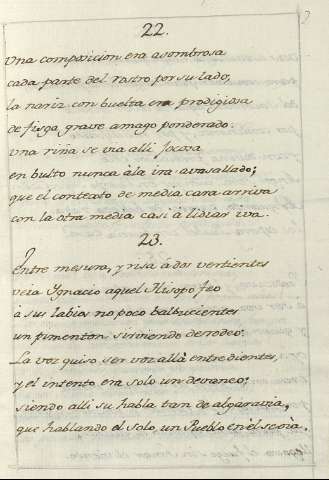 22.
Una composicion era asombrosa
cada parte del rostro por su lado,
la nariz con buelta era prodigiosa
de fisga, grave amago ponderado.
una riña se via alli jocosa
en bulto nunca àla ira avasallado;
que el contexto de media cara arriva
con la otra media casi à lidiar iva.
23.
Entre mesura, y risa à dos vertientes
veia Ignacio aquel Hisopo feo
à sus labios no poco balbucientes
un pimenton sirviendo de rodeo.
La voz quiso ser voz allà entre dientes,
y el intento era solo un devaneo;
siendo alli su habla tan de algaravia,
que hablando el solo, un Pueblo en èl se oìa.